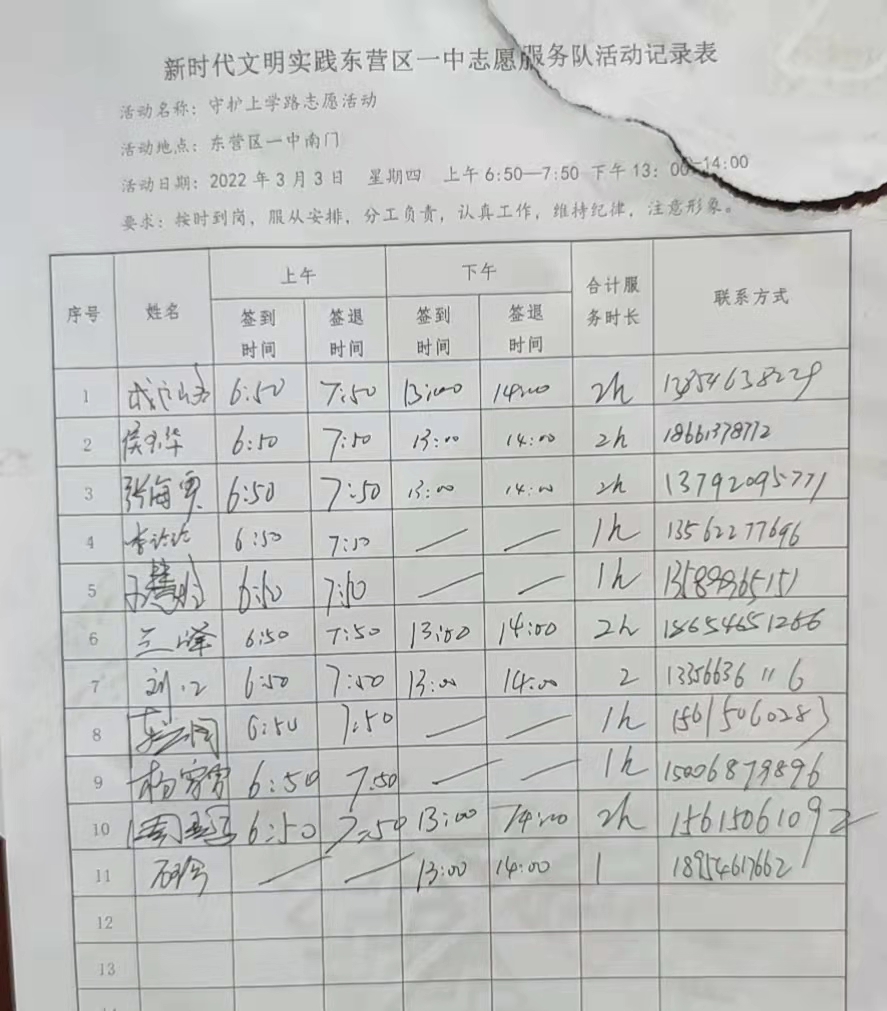 新时代文明实践东营区一中志愿服务队活动记录表
活动名称：守护上学路志愿活动
活动地点：东营区一中南门
活动日期：2022年3月3日 星期四 上午6:50—7:50 下午13：00-14:00
要求：按时到岗，服从安排，分工负责，认真工作，维持纪律，注意形象。
序号 姓名 上午 下午 合计服务时长 联系方式
签到时间 签退时间 签到时间 签退时间
1 6:50 7:50 13:00 14:00 2h
2 6:50 7:50 13:00 14:00 2h 18661378772
3 张海霞 6:50 7:50 13:00 14:00 2h 13792095771
4 6:50 7:50 — — 1h 13562277696
5 6:50 7:50 — — 1h
6 兰峰 6:50 7:50 13:00 14:00 2h
7 6:50 7:50 13:00 14:00 2 13356636116
8 6:50 7:50 — — 1h 15615060283
9 杨雪雪 6:50 7:50 — — 1h 15006879896
10 6:50 7:50 13:00 14:00 2h 15615061092
11 — — 13:00 14:00 1 18954617662
12
13